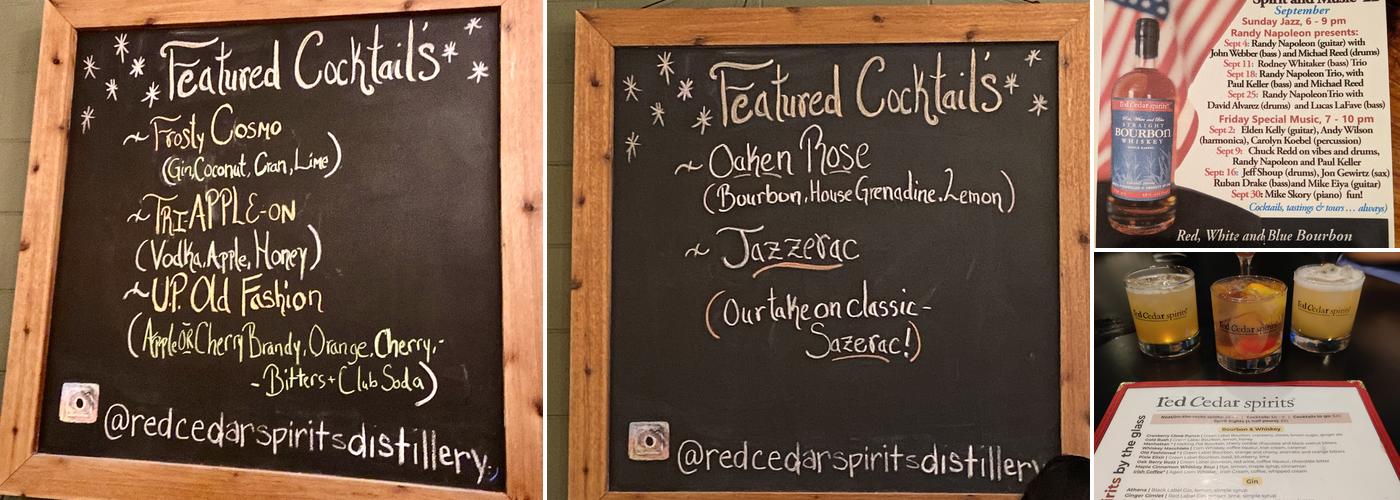 Featured Cocktail's
~Frosty Cosmo
(Gin, Coconut, Cran, Lime)
~TRIAPPLE-ON
(Vodka, Apple, Honey)
~U.P. Old Fashion
(Apple OR Cherry Brandy, Orange, Cherry,-
-Bitters+Club Soda)
@redcedarspiritsdistillery
Featured Cocktail's
~Oaken Rose
(Bourbon, House Grenadine, Lemon)
~Jazzerac
(Our take on classic-
Sazerac!)
@redcedarspiritsdistillery
Spirit and Music
September
Sunday Jazz, 6 - 9 pm
Randy Napoleon presents:
Sept 4: Randy Napoleon (guitar) with
John Webber (bass) and Michael Reed (drums)
Sept 11: Rodney Whitaker (bass) Trio
Sept 18: Randy Napoleon Trio, with
Paul Keller (bass) and Michael Reed
Sept 25: Randy Napoleon Trio with
David Alvarez (drums) and Lucas LaFave (bass)
Friday Special Music, 7 - 10 pm
Sept 2: Elden Kelly (guitar), Andy Wilson
(harmonica), Carolyn Koebel (percussion)
Sept 9: Chuck Redd on vibes and drums,
Randy Napoleon and Paul Keller
Sept: 16: Jeff Shoup (drums), Jon Gewirtz (sax)
Ruban Drake (bass) and Mike Eiya (guitar)
Sept 30: Mike Skory (piano) fun!
Cocktails, tastings & tours ... always)
Red Cedar spirits
Red, White and Blue
STRAIGHT
BOURBON
WHISKEY
Red, White and Blue Bourbon
Red Cedar spirits
Red Cedar spirits
Red Cedar spirits
Red Cedar spirits
Bourbon & Whiskey
Gin
by the glass